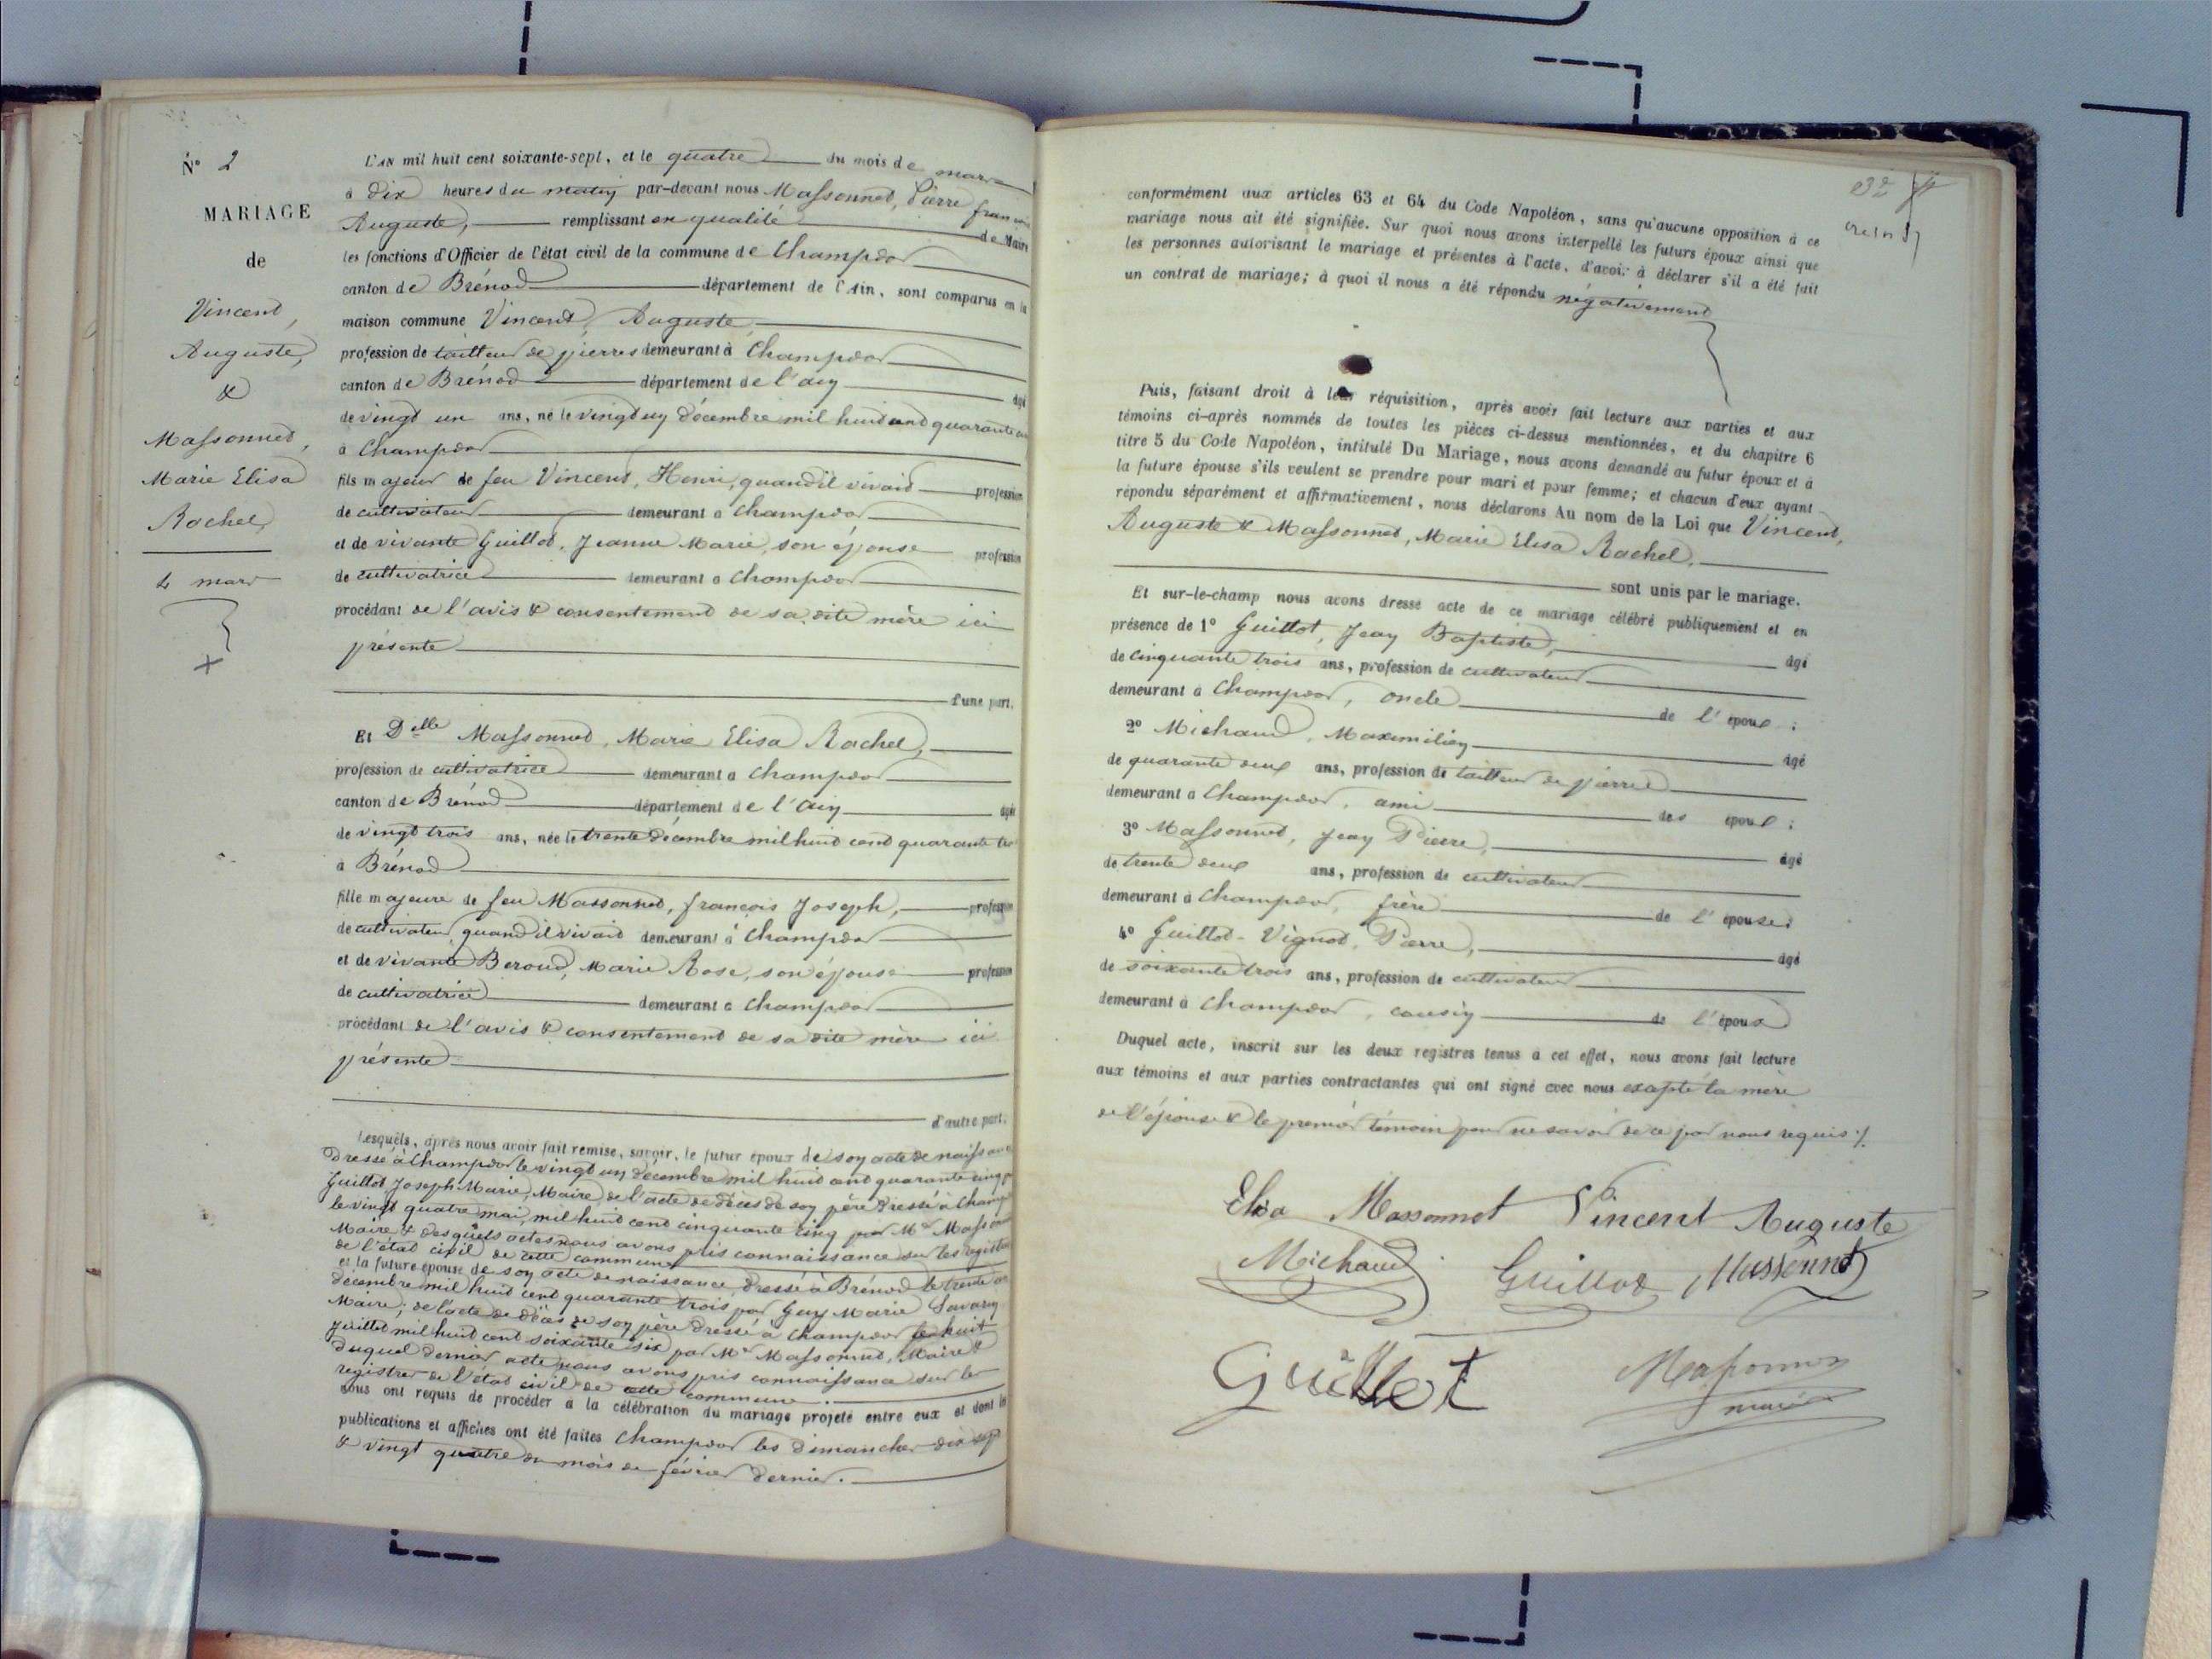 N° 2
MARIAGE
de
Vincent,
Auguste,
&
Massonnet,
Marie Elisa
Rachel,
4 mars
L'AN mil huit cent soixante-sept, et le quatre du mois de mars
à dix heures du matin par-devant nous Massonnet, Pierre françois
Auguste, remplissant en qualité de Maire
les fonctions d'Officier de l'état civil de la commune de Champdor
canton de Brénod département de l'Ain, sont comparus en la
maison commune Vincent Auguste,
profession de tailleur de pierres demeurant à Champdor
canton de Brénod département de l'ain âgé
de vingt un ans, né le vingt un décembre mil huit cent quarante
à Champdor
fils majeur de feu Vincent, Henri, quand il vivait profession
de cultivateur demeurant à Champdor
et de vivante Guillot, Jeanne Marie, son épouse profession
de cultivatrice demeurant à Champdor
procédant de l'avis & consentement de sa dite mère ici
présente
d'une part.
Et Delle Massonnet, Marie Elisa Rachel,
profession de cultivatrice demeurant à Champdor
canton de Brénod département de l'ain âgée
de vingt trois ans, née le trente décembre mil huit cent quarante
à Brénod
fille majeure de feu Massonnet, françois Joseph, profession
de cultivateur quand il vivait demeurant à Champdor
et de vivante Beroud, Marie Rose, son épouse profession
de cultivatrice demeurant à Champdor
procédant de l'avis & consentement de sa dite mère ici
présente
d'autre part.
Lesquels, après nous avoir fait remise, savoir, le futur époux de son acte de naissance
dressé à Champdor le vingt un décembre mil huit cent quarante cinq
Guillot Joseph Marie, Maire, de l'acte de décès de son père dressé à Champdor
le vingt quatre mai, mil huit cent cinquante cinq par Mr Massonnet
Maire & desquels actes nous avons pris connaissance sur les registres
de l'état civil de cette commune
et la future épouse de son acte de naissance, dressé à Brénod le trente
décembre mil huit cent quarante trois par Guy Marie Savarin
Maire; de l'acte de décès de son père dressé à Champdor le huit
juillet mil huit cent soixante six par Mr Massonnet, Maire &
duquel dernier acte nous avons pris connaissance sur les
registres de l'état civil de cette commune.
nous ont requis de procéder à la célébration du mariage projeté entre eux et dont les
publications et affiches ont été faites Champdor les dimanches dix sept
& vingt quatre du mois de février dernier.
conformément aux articles 63 et 64 du Code Napoléon, sans qu'aucune opposition à ce
mariage nous ait été signifiée. Sur quoi nous avons interpellé les futurs époux ainsi que
les personnes autorisant le mariage et présentes à l'acte, d'avoir à déclarer s'il a été fait
un contrat de mariage; à quoi il nous a été répondu négativement
Puis, faisant droit à leur réquisition, après avoir fait lecture aux parties et aux
témoins ci-après nommés de toutes les pièces ci-dessus mentionnées, et du chapitre 6
titre 5 du Code Napoléon, intitulé Du Mariage, nous avons demandé au futur époux et à
la future épouse s'ils veulent se prendre pour mari et pour femme; et chacun d'eux ayant
répondu séparément et affirmativement, nous déclarons Au nom de la Loi que Vincent,
Auguste & Massonnet, Marie Elisa Rachel,
sont unis par le mariage.
Et sur-le-champ nous avons dressé acte de ce mariage célébré publiquement et en
présence de 1° Guillot, Jean Baptiste, âgé
de cinquante trois ans, profession de cultivateur
demeurant à Champdor, oncle de l'époux;
2° Michaud, Maximilien âgé
de quarante deux ans, profession de tailleur de pierre
demeurant à Champdor, ami des époux;
3° Massonnet, Jean Pierre, âgé
de trente deux ans, profession de cultivateur
demeurant à Champdor, frère de l'épouse;
4° Guillot-Vignot, Pierre, âgé
de soixante trois ans, profession de cultivateur
demeurant à Champdor, cousin de l'époux
Duquel acte, inscrit sur les deux registres tenus à cet effet, nous avons fait lecture
aux témoins et aux parties contractantes qui ont signé avec nous excepté la mère
de l'épouse & le premier témoin pour ne savoir de ce par nous requis ./.
Elisa Massonnet Vincent Auguste
Michaud Guillot Massonnet
Guillot Massonnet
maire